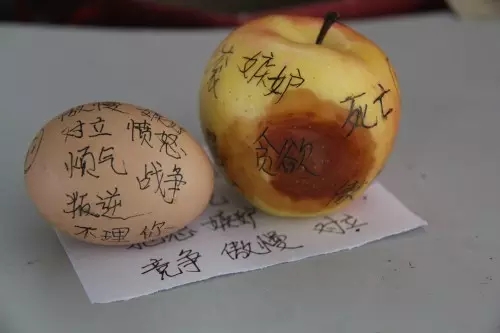 傲慢
对立 愤怒
顺气 战争
叛逆
不理你
嫉妒
死亡
贪欲
嫉妒
竞争 傲慢 对立